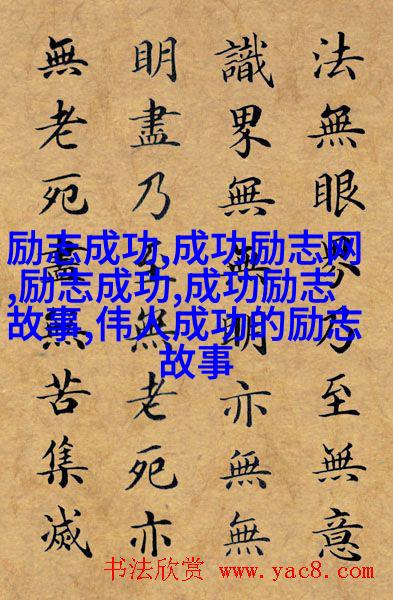 法無眼界乃至無意
識界無無明亦無無
明盡乃至無老死亦
無老死盡無苦集滅
励志成功,成功励志网
,励志成功,成功励志
故事,伟人成功的励志
故事
书法欣赏 www.yac8.com